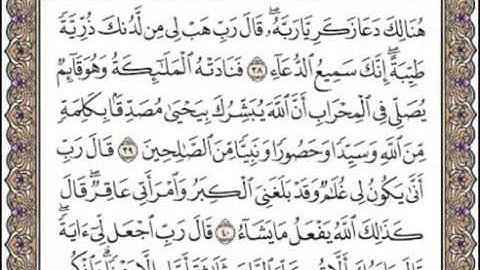 هُنَالِكَ دَعَا زَكَرِيَّا رَبَّهُۥۖ قَالَ رَبِّ هَبْ لِى مِن لَّدُنكَ ذُرِّيَّةً
طَيِّبَةًۖ إِنَّكَ سَمِيعُ ٱلدُّعَآءِ ٣٨ فَنَادَتْهُ ٱلْمَلَٰٓئِكَةُ وَهُوَ قَآئِمٌ
يُصَلِّى فِى ٱلْمِحْرَابِ أَنَّ ٱللَّهَ يُبَشِّرُكَ بِيَحْيَىٰ مُصَدِّقًۢا بِكَلِمَةٍ
مِّنَ ٱللَّهِ وَسَيِّدًا وَحَصُورًا وَنَبِيًّا مِّنَ ٱلصَّٰلِحِينَ ٣٩ قَالَ رَبِّ
أَنَّىٰ يَكُونُ لِى غُلَٰمٌ وَقَدْ بَلَغَنِىَ ٱلْكِبَرُ وَٱمْرَأَتِى عَاقِرٌۖ قَالَ
كَذَٰلِكَ ٱللَّهُ يَفْعَلُ مَا يَشَآءُ ٤٠ قَالَ رَبِّ ٱجْعَل لِّىٓ ءَايَةًۖ